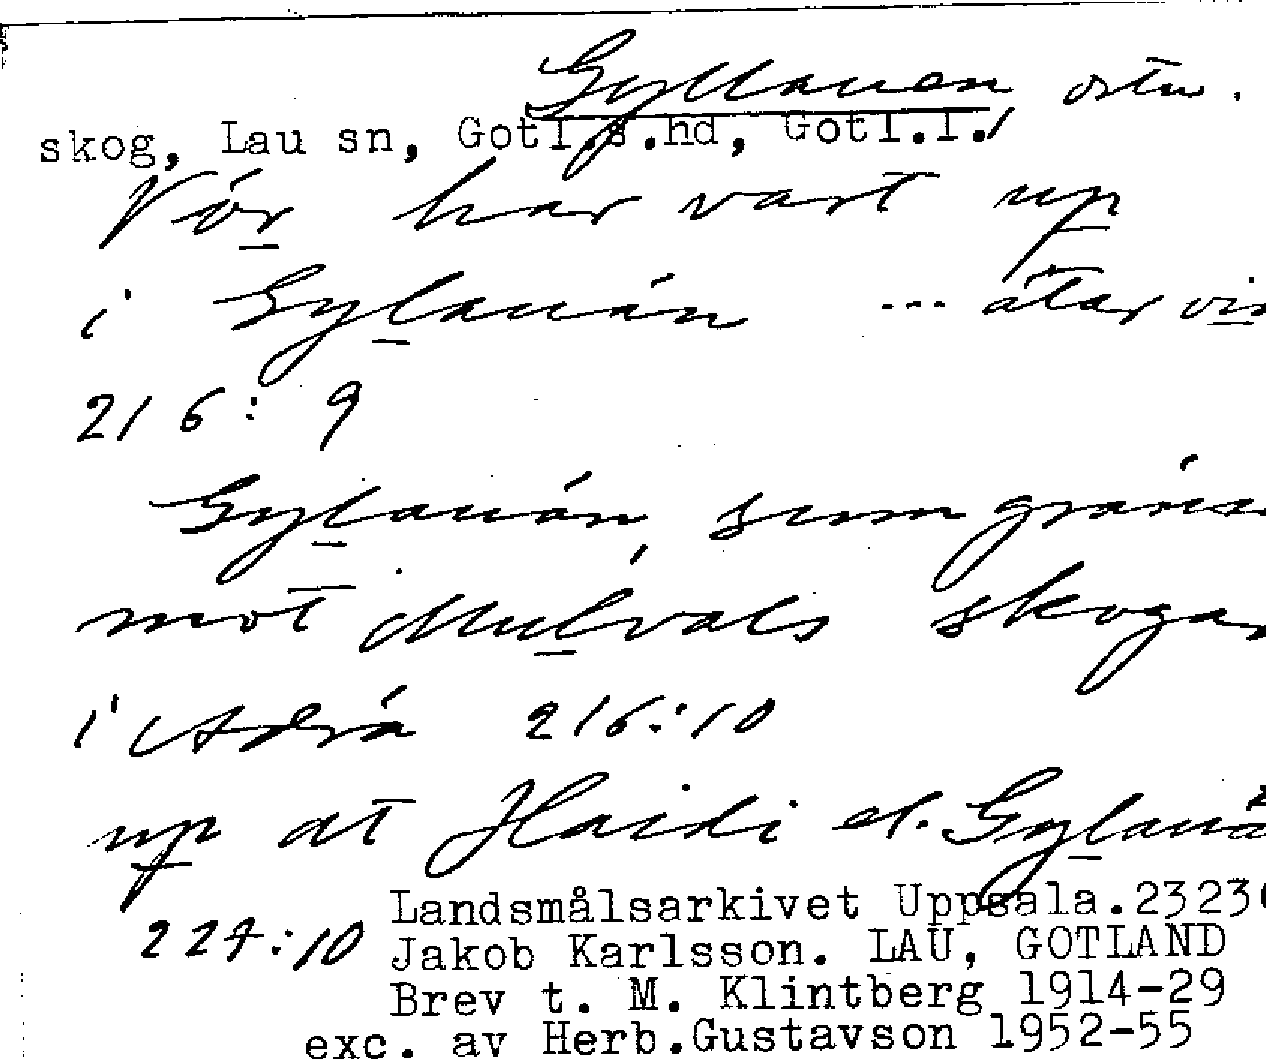 Gyllauen ostm.
skog, Lau sn, Gotl.s.hd, Gotl.l.
Vör har vart up
i Gylauän ... ätar vin
216:9
Gylauän, sum gräns
mot Mulvals skogar
i Adrä 216:10
up at Haidi el. Gylauä
224:10 Landsmålsarkivet Uppsala.2323
Jakob Karlsson. LAU, GOTLAND
Brev t. M. Klintberg 1914-29
exc. av Herb.Gustavson 1952-55